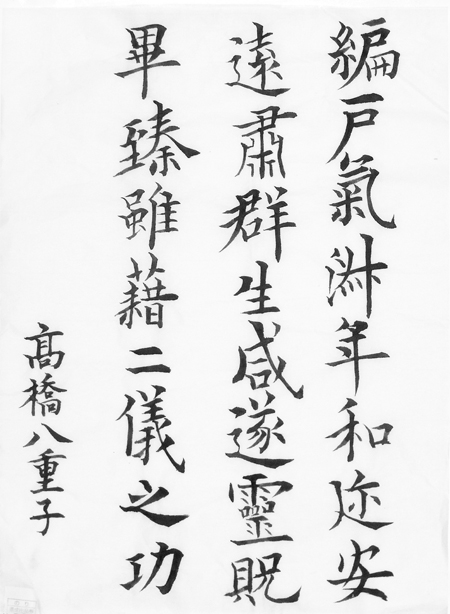 編戸氣淑年和迩安
遠肅群生咸遂靈貺
畢臻雖藉二儀之功
髙橋八重子